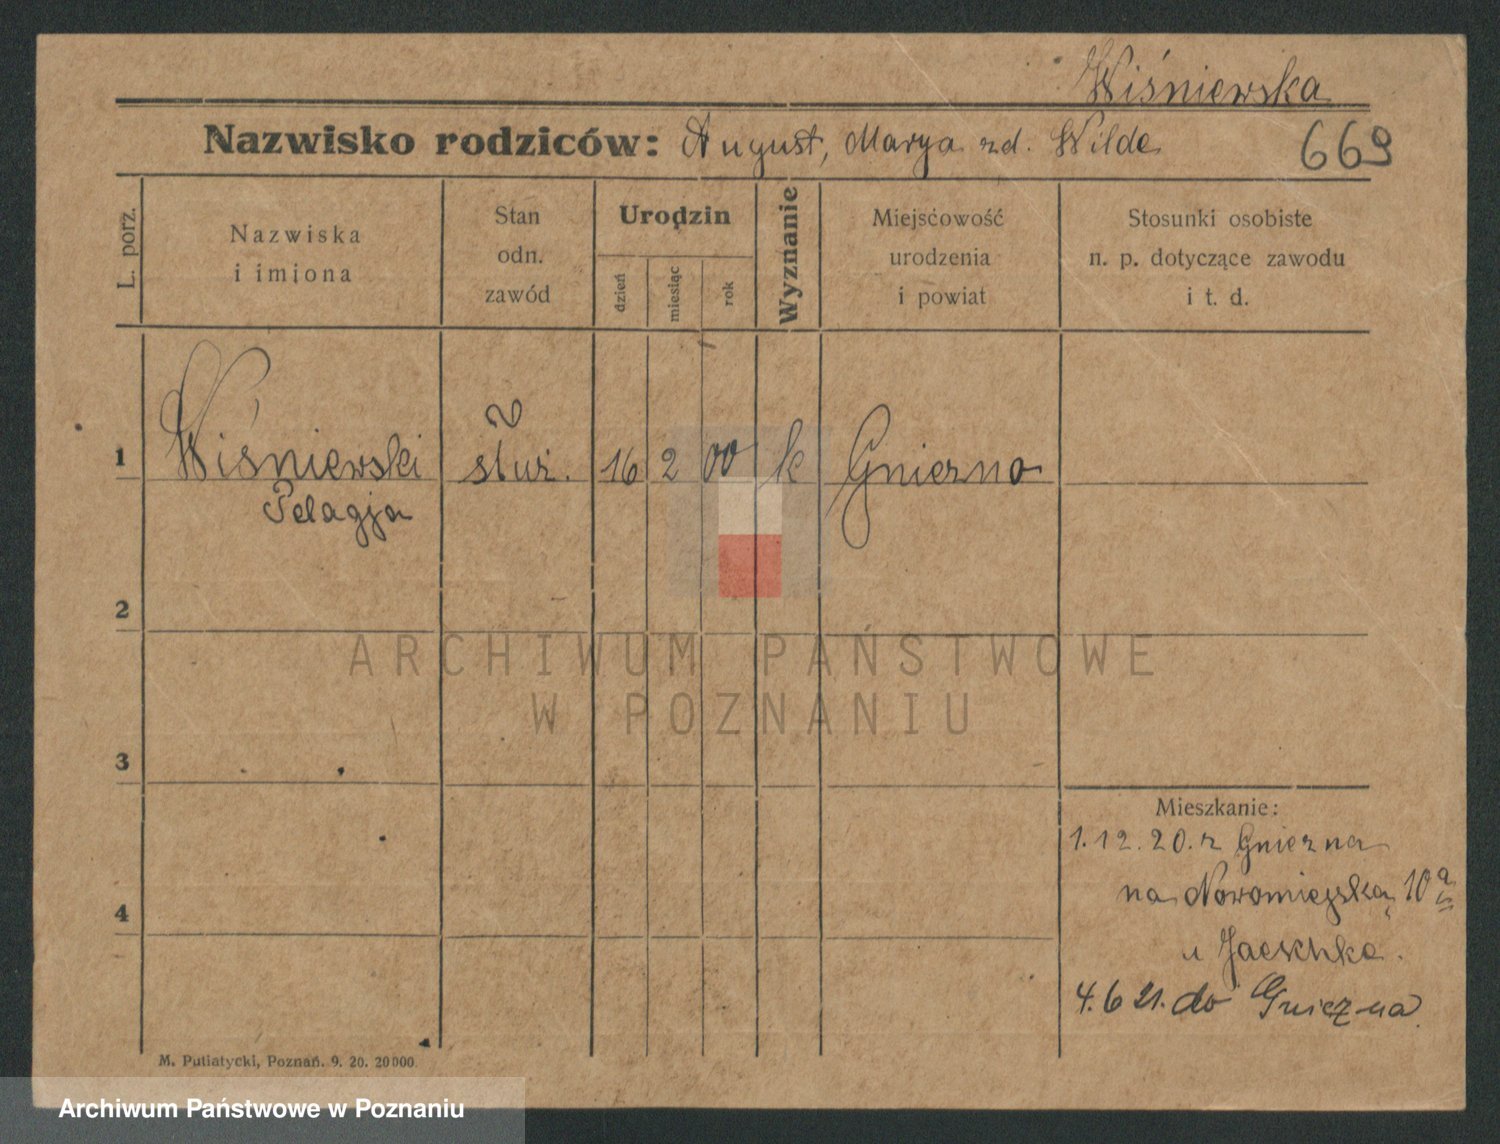 Wiśniewska
Nazwisko rodziców: August, Marya zd. Wilde
669
L. porz.
Nazwiska
i imiona
Stan
odn.
zawód
Urodzin
dzień
miesiąc
rok
Wyznanie
Miejscowość
urodzenia
i powiat
Stosunki osobiste
n. p. dotyczące zawodu
i t. d.
1 Wiśniewski służ. 16 2 00 k Gniezno
Pelagja
2
3
4
Mieszkanie:
1.12.20. z Gniezna
na Nowomiejską 10a
u Jaeschke.
4.6 21. do Gniezna
M. Putiatycki, Poznań. 9. 20. 20000.
ARCHIWUM PAŃSTWOWE
W POZNANIU
Archiwum Państwowe w Poznaniu